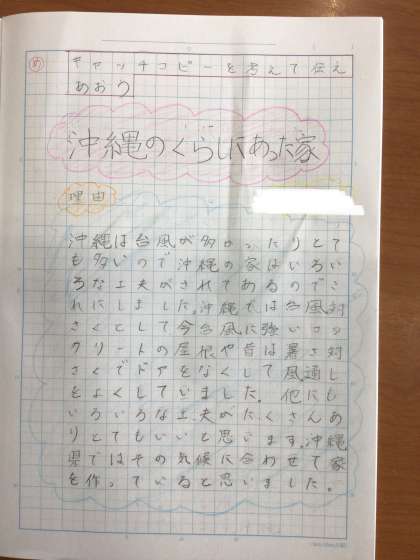 め キャッチコピーを考えて伝え
あおう
沖縄のくらしにあった家
理由
沖縄は台風が多かったりとて
も多いので沖縄の家はいろい
ろな工夫がされてあるのでこ
れにしました。沖縄では台風対
さくとして今台風に強いコン
クリートの屋根や昔は暑さ対
さくでドアをなくして風通し
をよくしていました。他にも
いろいろな工夫がたくさんあ
りとてもいいと思います。沖縄
県ではその気候に合わせて家
を作っていると思いました。